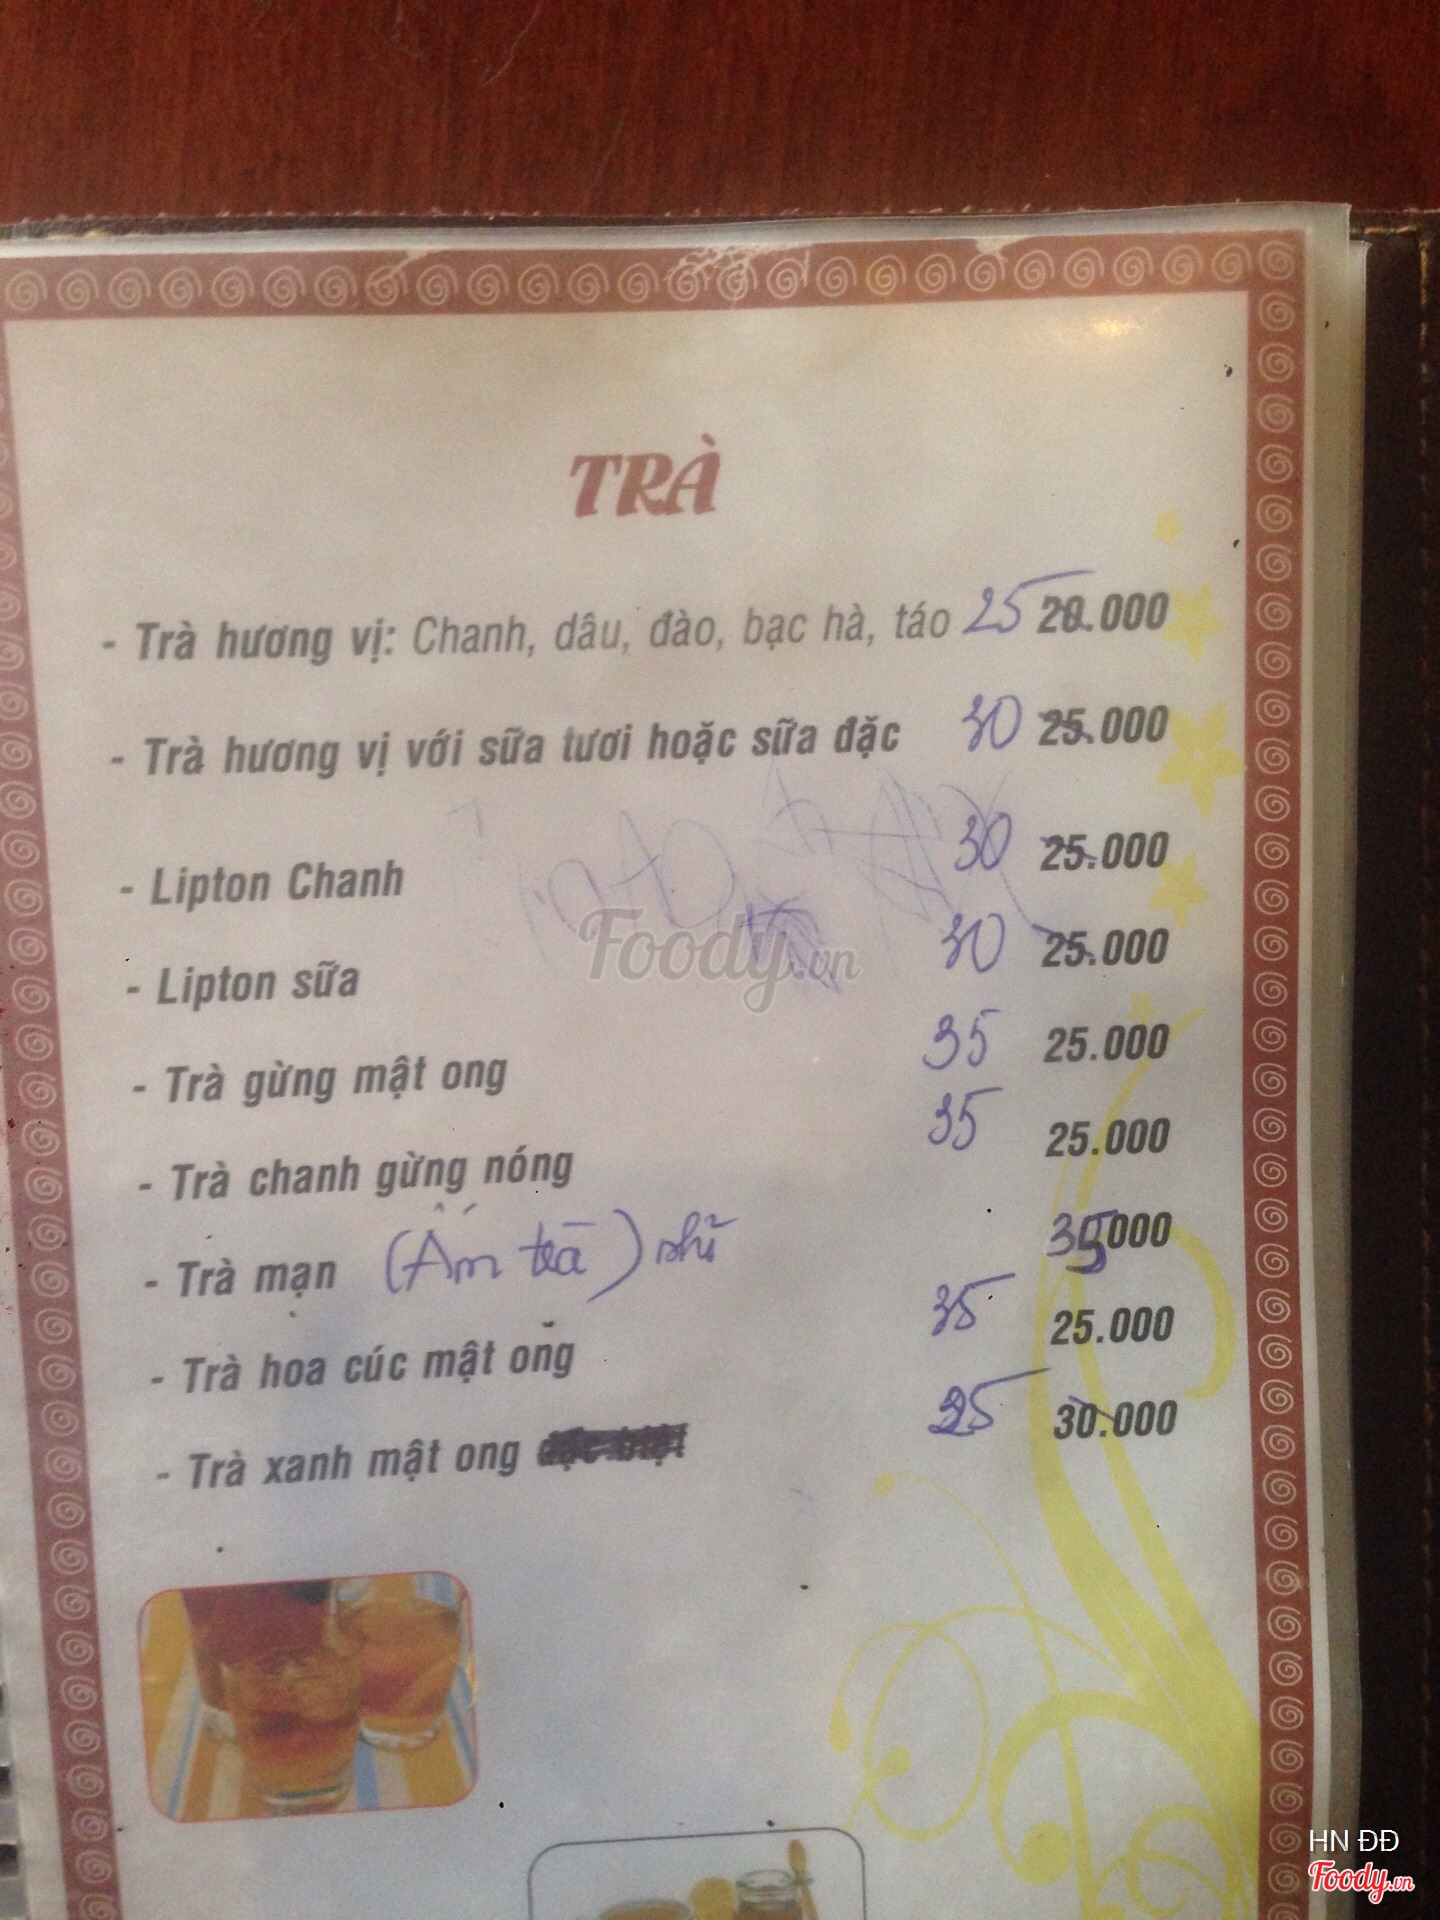 TRÀ
- Trà hương vị: Chanh, dâu, đào, bạc hà, táo 25 20.000
- Trà hương vị với sữa tươi hoặc sữa đặc 30 25.000
- Lipton Chanh 30 25.000
Foody.vn
- Lipton sữa 30 25.000
- Trà gừng mật ong 35 25.000
- Trà chanh gừng nóng 35 25.000
- Trà mạn (Ấm trà) nhỏ 35000
- Trà hoa cúc mật ong 35 25.000
- Trà xanh mật ong đặc biệt 35 30.000
HN ĐĐ
Foody.vn